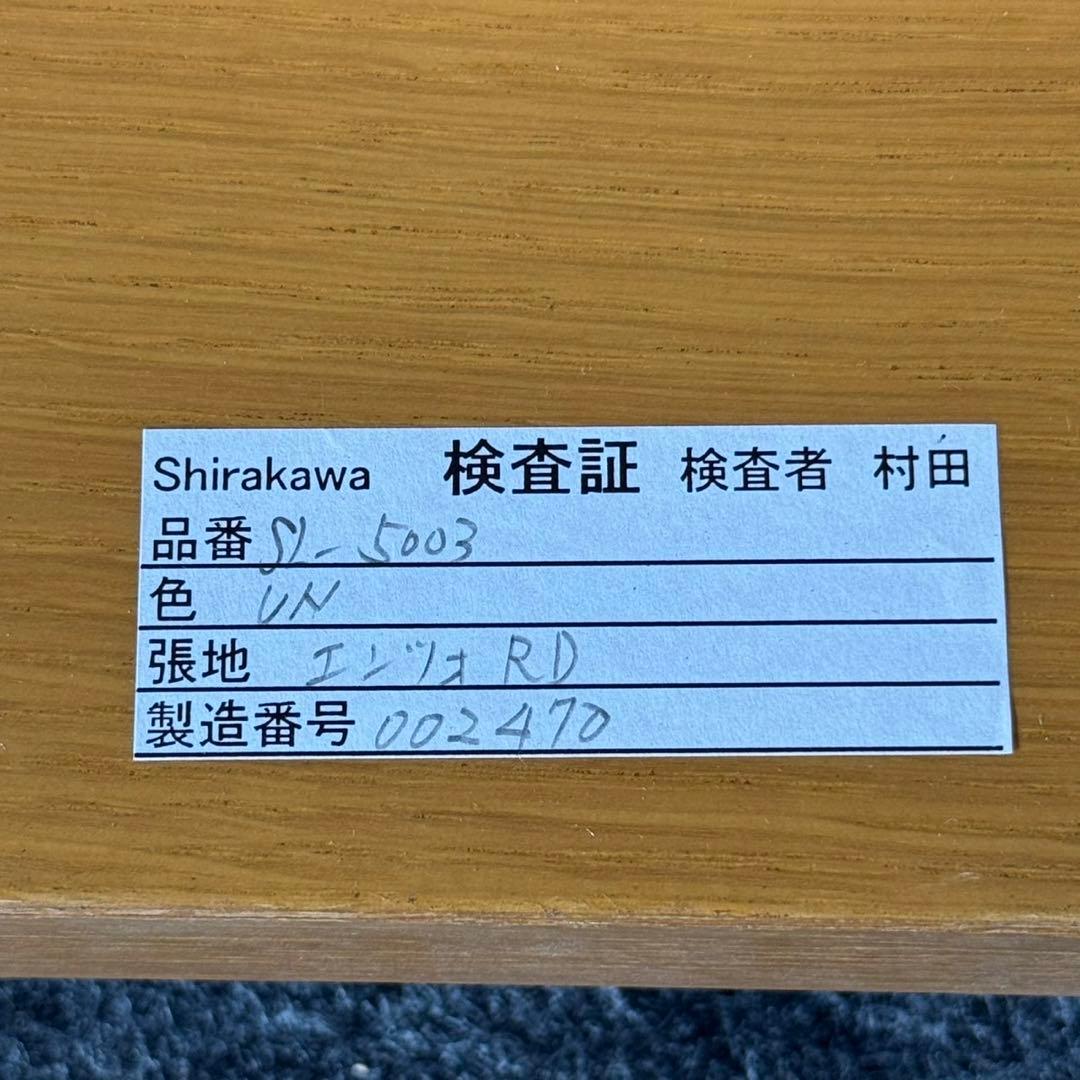 Shirakawa 検査証 検査者 村田
品番 SL-5003
色 UN
張地 エンツォ RD
製造番号 002470